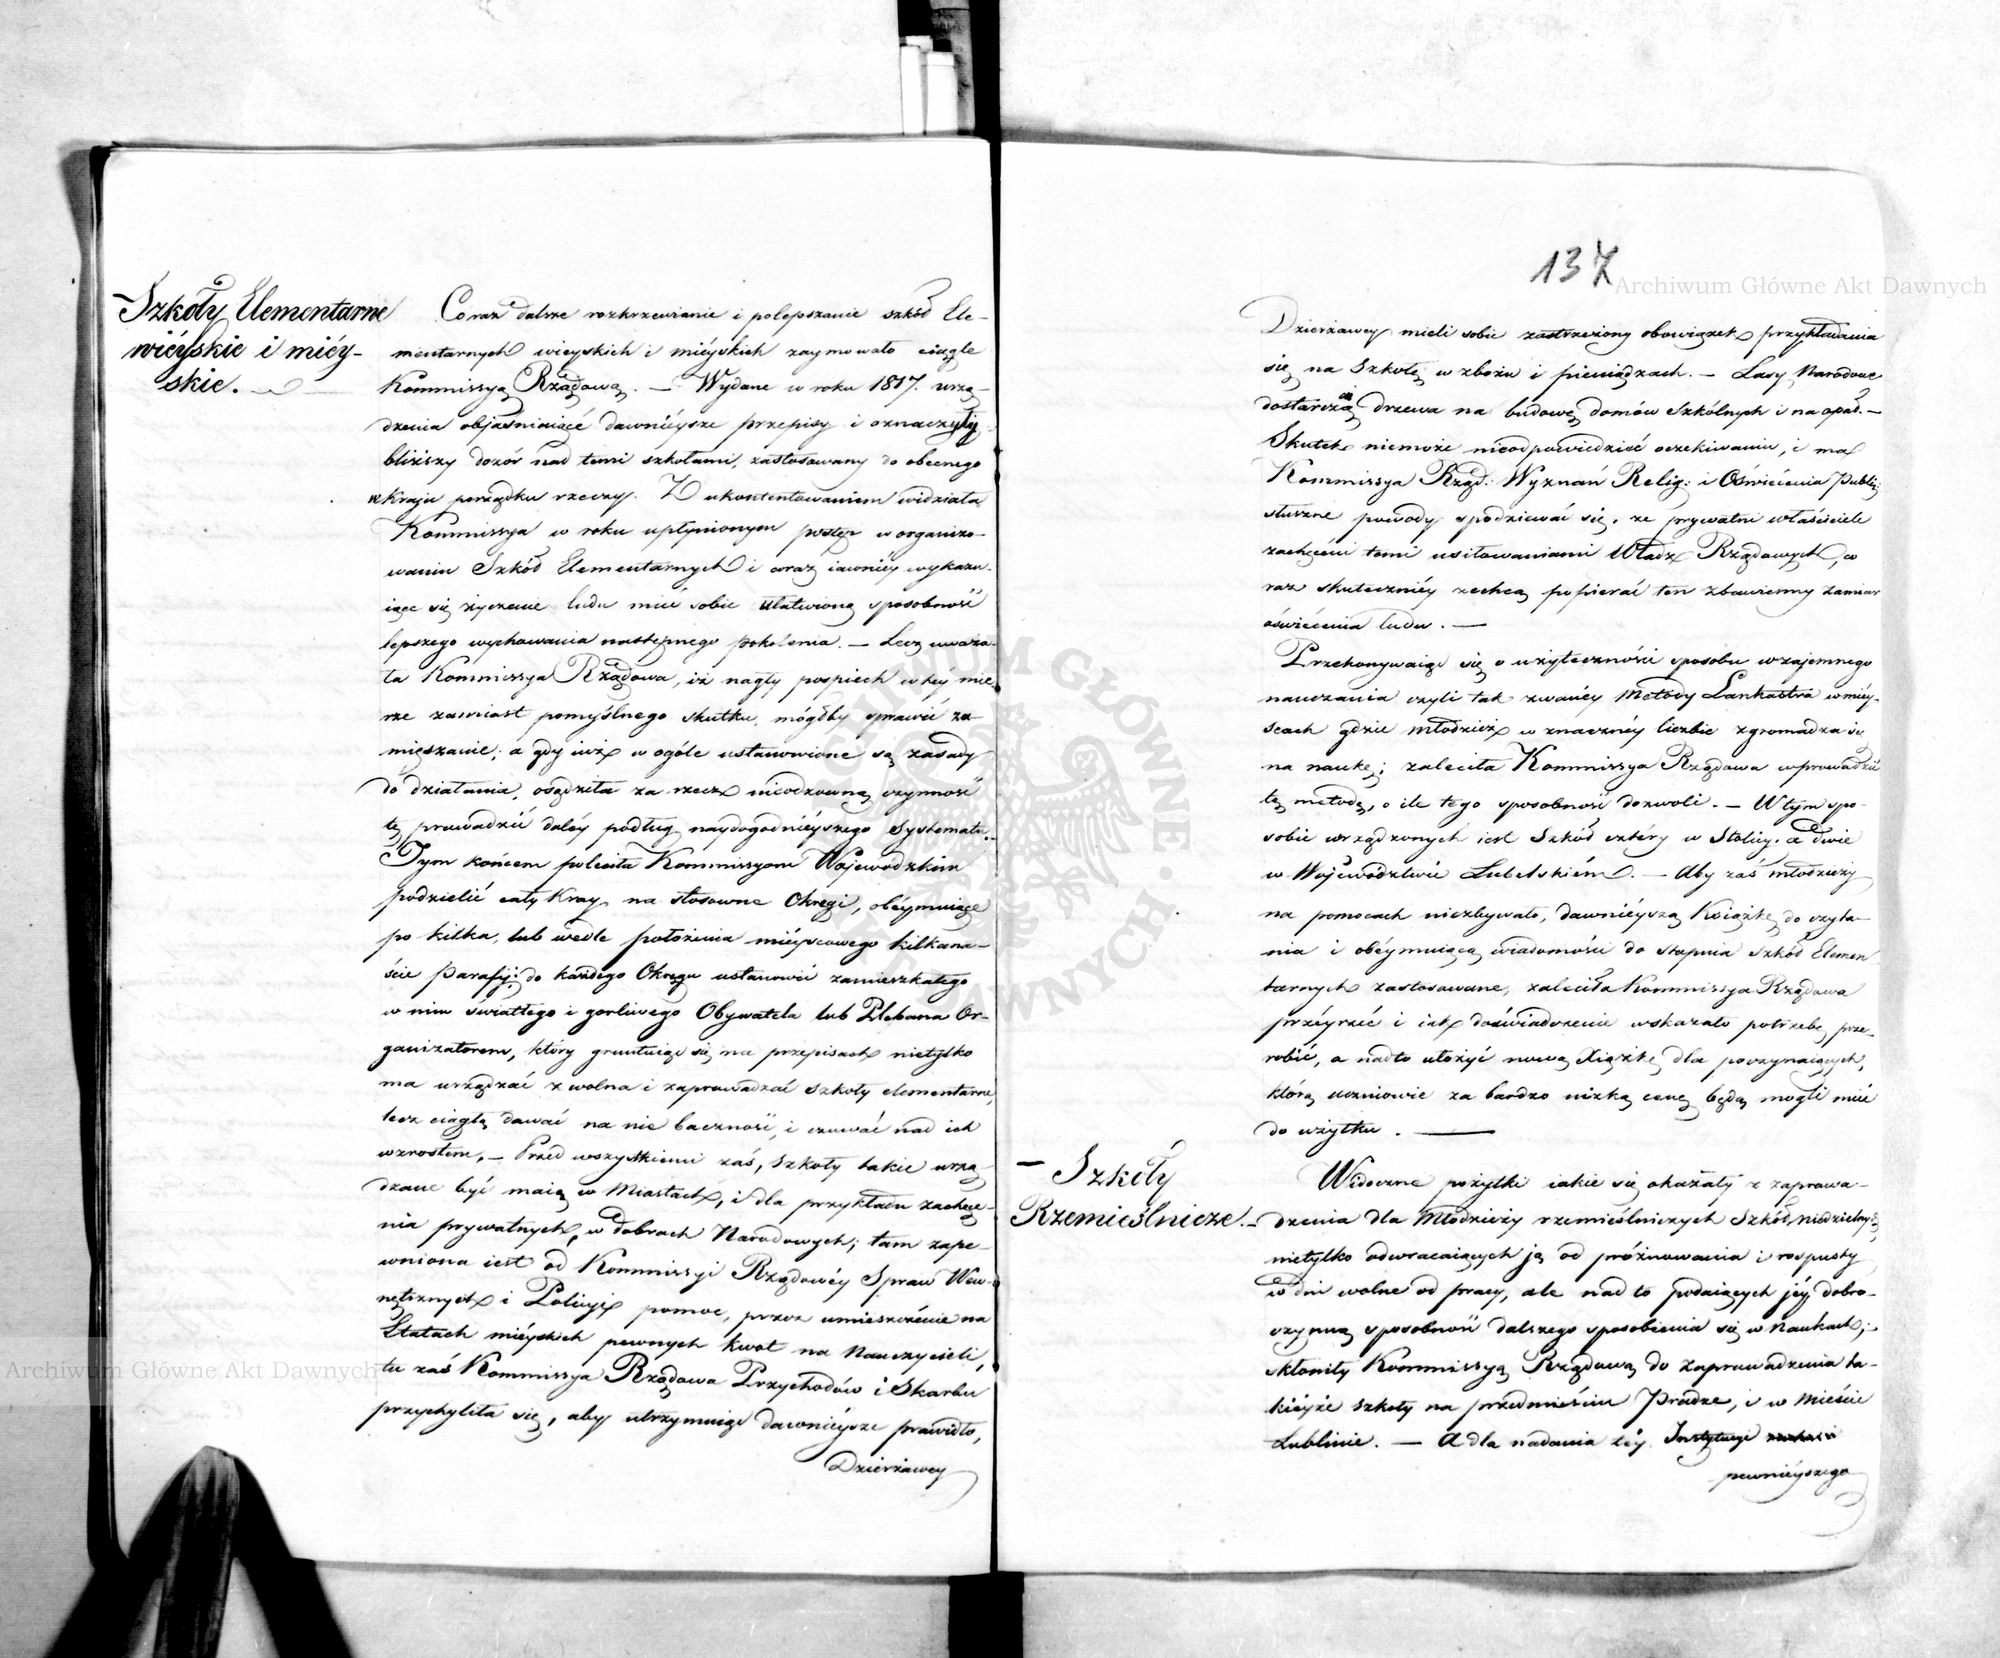 Szkoły Elementarne
wieyskie i miéy-
skie. —
Coraz dalsze rozkrzewianie i polepszanie szkół Ele-
mentarnych wieyskich i miéyskich zaymowało ciągle
Kommissyą Rządową. — Wydane w roku 1817. urzą-
dzenia obiaśniaiącé dawniéysze przepisy i oznaczyły
bliższy dozór nad temi szkołami, zastosowany do obecnego
w Kraju porządku rzeczy. Z ukontentowaniem widziała
Kommissya w roku upłynionym postęp w organizo-
waniu Szkół Elementarnych i coraz iawniéy wykazu-
iące się życzenie ludu mieć sobie ułatwioną sposobność
lepszego wychowania następnego pokolenia. — Lecz uważa-
ła Kommissya Rządowa, iż nagły pospiech w téy mie-
rze zamiast pomyślnego skutku, mógłby sprawić za-
mięszanie; a gdy iuż w ogóle ustanowione są zasady
do działania, osądziła za rzecz nieodzowną czynność
tę prowadzić daléy podług naydogodniéyszego systematu.
Tym końcem poleciła Kommissyom Wojewódzkim
podzielić cały Kray na stosowne Okręgi, obéymuiące
po kilka, lub wedle położenia miéyscowego kilkana-
ście Parafij; do każdego Okręgu ustanowić zamieszkałego
w nim światłego i gorliwego Obywatela lub Plebana Or-
ganizatorem, który gruntuiąc się na przepisach nietylko
ma urządzać zwolna i zaprowadzać szkoły elementarne,
lecz ciągłą dawać na nie baczność, i czuwać nad ich
wzrostem. — Przed wszystkiemi zaś, szkoły takie urzą-
dzane być maią w Miastach, i dla przykładu zachęce-
nia prywatnych, w dobrach Narodowych; tam zape-
wniona iest od Kommissyi Rządowéy Spraw Wew-
nętrznych i Policyi pomoc, przez umieszczenie na
Etatach miéyskich pewnych kwot na Nauczycieli,
tu zaś Kommissya Rządowa Przychodów i Skarbu
przychyliła się, aby utrzymuiąc dawniéysze prawidło,
Dzierżawcy
137
Dzierżawcy mieli sobie zastrzeżony obowiązek przykładania
się na Szkołę w zbożu i pieniądzach. — Lasy Narodowe
dostarczą drzewa na budowę domów szkólnych i na opał. —
Skutek niemoże nieodpowiedzieć oczekiwaniu, i ma
Kommissya Rząd: Wyznań Relig: i Oświécenia Publi:
słuszne powody spodziewać się, że prywatni właściciele
zachęceni temi usiłowaniami Władz Rządowych, co
raz skuteczniéy zechcą popierać ten zbawienny zamiar
oświécenia ludu. —
Przekonywaiąc się o użyteczności sposobu wzajemnego
nauczania czyli tak zwanéy Metody Lankastra w miéy-
scach gdzie młodzież w znacznéy liczbie zgromadza się
na naukę; zaleciła Kommissya Rządowa wprowadzić
tę metodę, o ile tego sposobność dozwoli. — W tym spo-
sobie urządzonych iest Szkół cztéry w Stolicy, a dwie
w Wojewodztwie Lubelskiém. — Aby zaś młodzieży
na pomocach niezbywało, dawniéyszą Książkę do czyta-
nia i obéymuiącą wiadomości do stopnia szkół Elemen
tarnych zastosowane, zaleciła Kommissya Rządowa
przéyrzéć i iak doświadczenie wskazało potrzebę prze-
robić, a nadto ułożyć nową Xiążkę dla poczynaiących,
którą uczniowie za bardzo nizką cenę będą mogli mieć
do użytku. —
— Szkoły
Rzemieślnicze. —
Widoczne pożytki iakie się okazały z zaprowa-
dzenia dla Młodzieży rzemieślniczych Szkół niedzielnych
nietylko odwracaiących ją od próżnowania i rospusty
w dni wolne od pracy, ale nadto podaiących jéy dobro-
czynną sposobność dalszego sposobienia się w Naukach;
skłoniły Kommissyą Rządową do zaprowadzenia ta-
kiéyże szkoły na przedmieściu Pradze, i w Mieście
Lublinie. — A dla nadania téy Instytucyi
pewniéyszego
Archiwum Główne Akt Dawnych
Archiwum Główne Akt Dawnych
ARCHIWUM GŁÓWNE AKT DAWNYCH